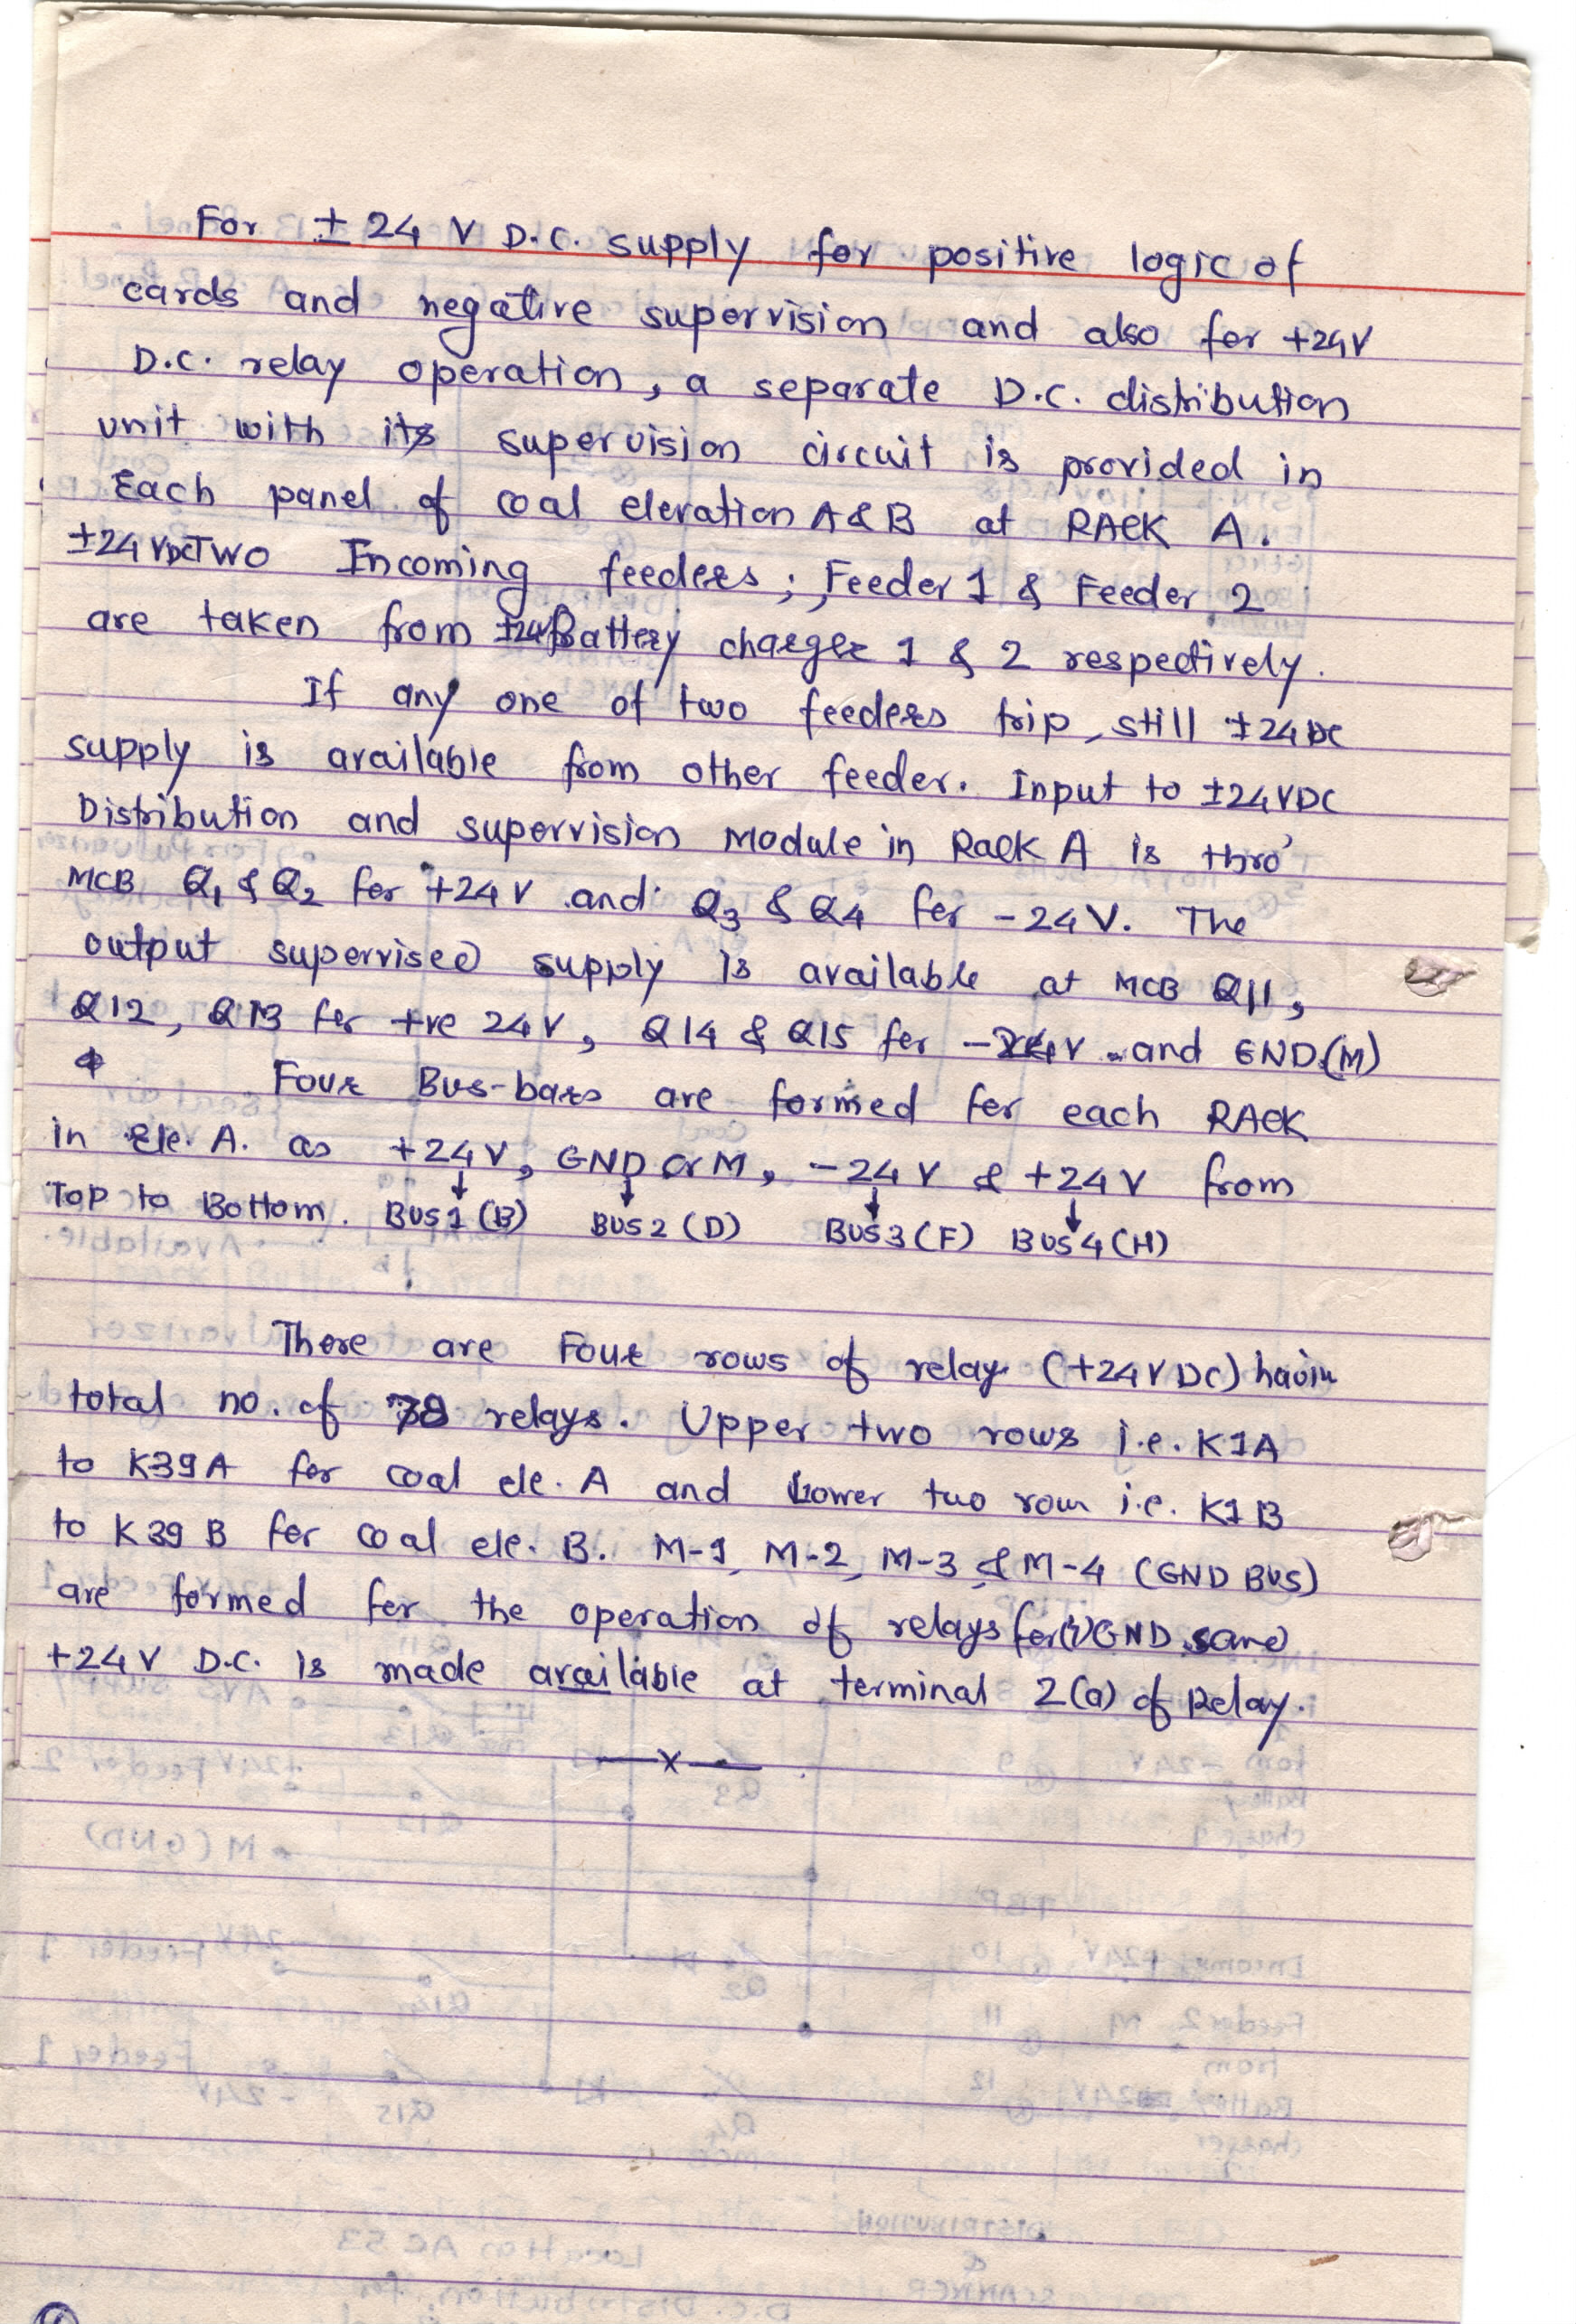 For ± 24 V D.C. supply for positive logic of
cards and negative supervision and also for +24V
D.C. relay operation, a separate D.C. distribution
unit with its supervision circuit is provided in
Each panel of coal elevation A&B at RACK A.
±24 VDC TWO Incoming feeders; Feeder 1 & Feeder 2
are taken from ±24V Battery charger 1 & 2 respectively.
If any one of two feeders trip, still ±24 DC
supply is available from other feeder. Input to ±24VDC
Distribution and supervision Module in Rack A is thro'
MCB Q1 & Q2 for +24 V and Q3 & Q4 for -24V. The
output supervised supply is available at MCB Q11,
Q12, Q13 for +ve 24V, Q14 & Q15 for -24V and GND(M)
Four Bus-bars are formed for each RACK
in Ele. A. as +24V, GND or M, -24 V & +24V from
Top to Bottom. BUS1 (B) BUS2 (D) BUS3 (F) BUS4 (H)
There are Four rows of relay (+24V DC) havin
total no. of 78 relays. Upper two rows i.e. K1A
to K39A for coal ele. A and Lower two row i.e. K1B
to K39B for coal ele. B. M-1, M-2, M-3 & M-4 (GND BUS)
are formed for the operation of relays for GND same
+24V D.C. is made available at terminal 2(a) of Relay.
—x—